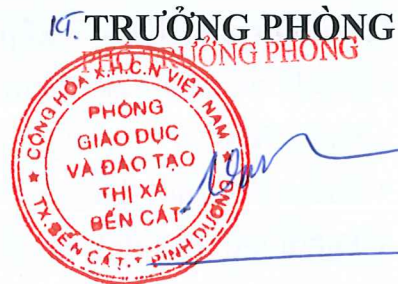 KT. TRƯỞNG PHÒNG
PHÓ TRƯỞNG PHÒNG
CỘNG HÒA X.H.C.N VIỆT NAM
PHÒNG
GIÁO DỤC
VÀ ĐÀO TẠO
THỊ XÃ
BẾN CÁT
TX.BẾN CÁT.T BÌNH DƯƠNG